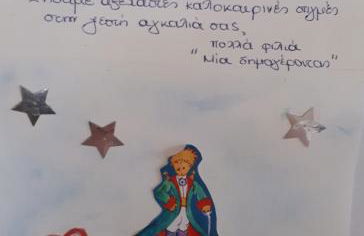 Ζήσαμε αξέχαστες καλοκαιρινές στιγμές
στην ζεστή αγκαλιά σας,
πολλά φιλιά
"Μία δημογέροντας"